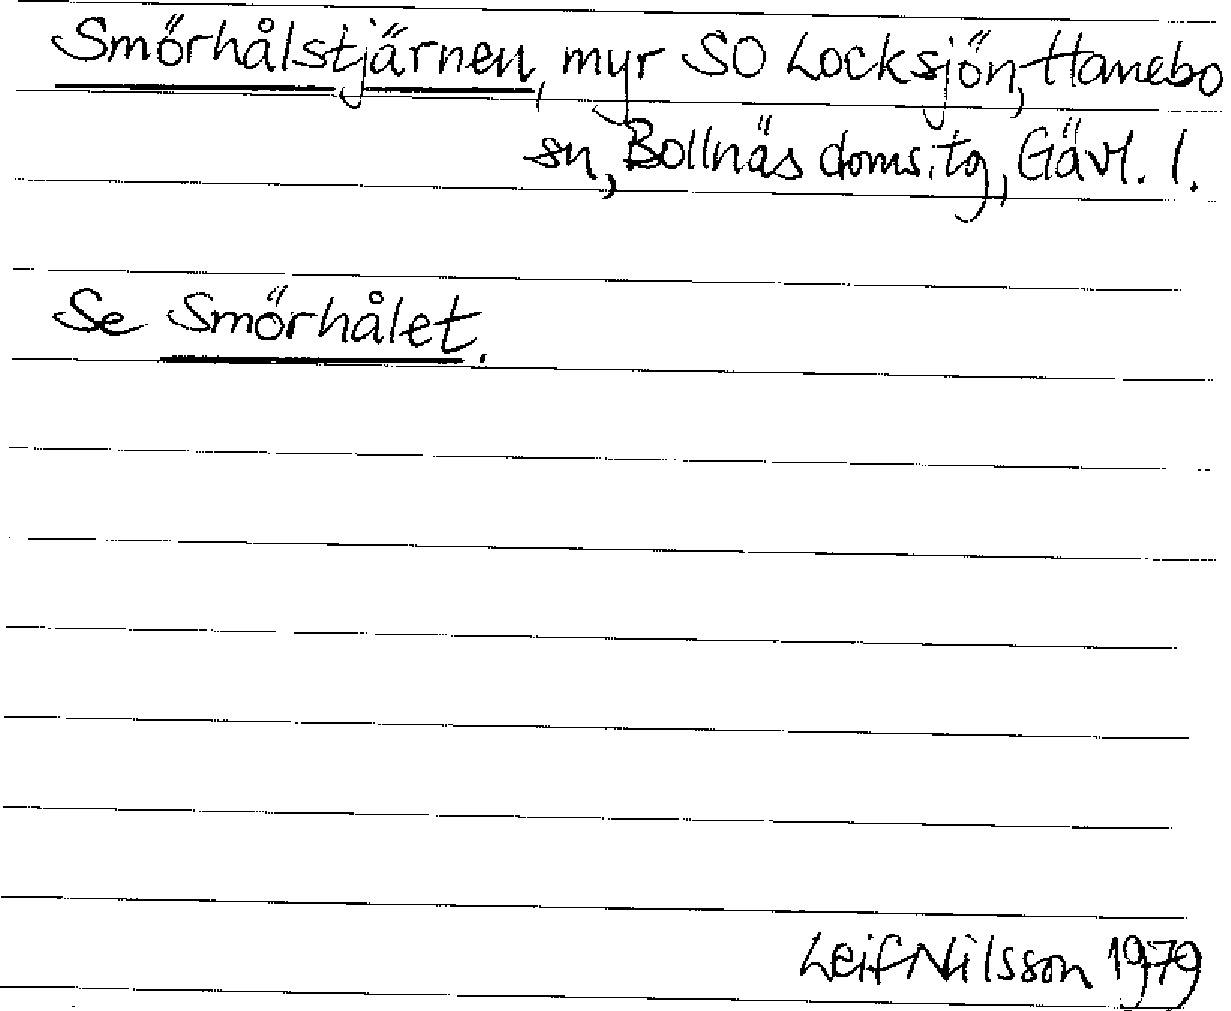 Smörhålstjärnen, myr SO Locksjön, Hanebo
sn, Bollnäs doms.tg, Gävl. l.
Se Smörhålet.
Leif Nilsson 1979